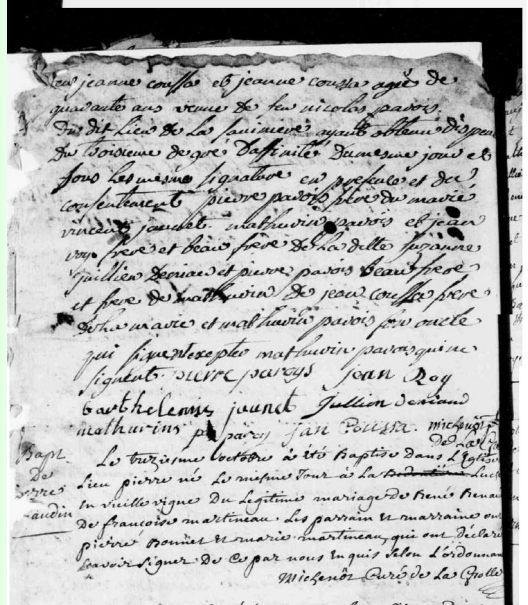 jeanne coussa et jeanne coussa agée de
quarante ans veuve de feu nicolas pavois
Du dit Lieu de La ayant obtenu dispense
Du troisieme degré Daffinité Du mesme jour et
sous les mesme signature en presence et du
consentement pierre pavois du marié
vincent jaunet mathurin pavois et jean
roy frere et beau frere de La dette suzanne
jullien deniau et pierre pavois beau frere
et frere de mathurin De jean coussa frere
De La mariee et mathurin pavois son oncle
qui signent excepté mathurin pavois qui ne
signent. pierre paroys jean Roy
barthelemis jaunet Jullien deniaud
mathurins paroy Jan Coussa. michenot
de La
Bapt
De
pierre
Le treziesme octobre à été Baptisé dans L'Eglise
Lieu pierre né Le mesme Jour à La
En vieille vigne Du Legitime mariage de René Renau
De francoise martineau Les parrain et marraine on
pierre Bonnet et marie martineau, qui ont déclaré
scavoir signer De Ce par nous Enquis selon L'ordonnan
Michenot Curé de La Grolle